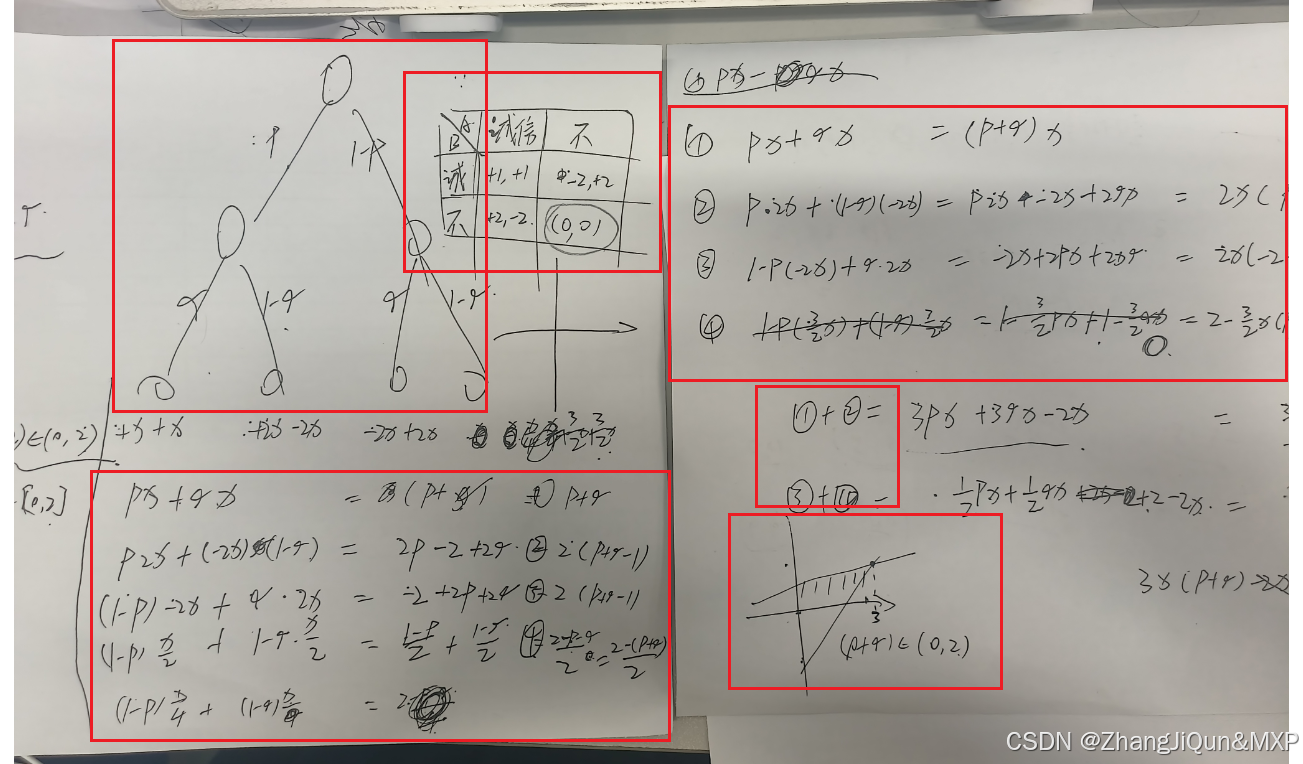 P
1-P
B A 诚信 不
诚 +1, +1 -2, +2
不 +2, -2 (0,0)
q 1-q q 1-q
∈(0, 2) +x + x +2x -2x -2x +2x
[0,2]
px + qx = (p+q) ① p+q
p2x + (-2x)(1-q) = 2p-2+2q ② 2(p+q-1)
(1-p) -2x + q·2x = -2+2p+2q ③ 2(p+q-1)
(1-p) x/2 + 1-q·x/2 = (1-p)/2 + (1-q)/2 ④ = (2-(p+q))/2
(1-p) x/4 + (1-q) = 2
① px + qx = (p+q)x
② p·2x + (1-q)(-2x) = p2x -2x+2qx = 2x(
③ 1-p(-2x)+q·2x = -2x+2px+2xq = 2x(-2
④ = 2-3/2x(
①+②= 3px +3qx-2x = 3
③+④ = 1/2px+1/2qx +2-2x =
3x(p+q)-2x
3
(p+q)∈(0,2)
CSDN @ZhangJiQun&MXP